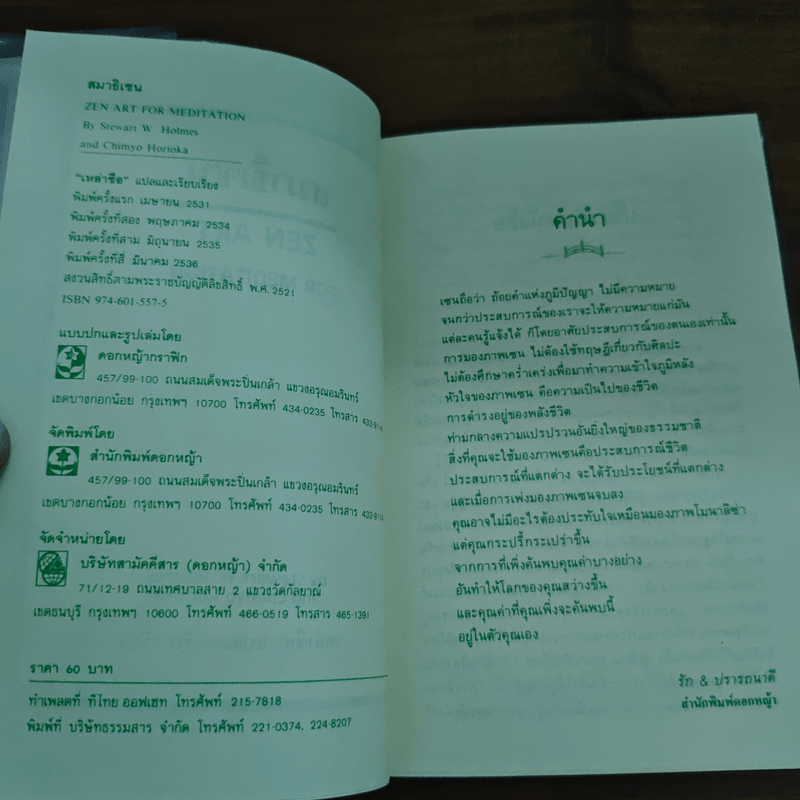 สมาธิเซน
ZEN ART FOR MEDITATION
By Stewart W. Holmes
and Chimyo Horioka
"เหล่าซือ" แปลและเรียบเรียง
พิมพ์ครั้งแรก เมษายน 2531
พิมพ์ครั้งที่สอง พฤษภาคม 2534
พิมพ์ครั้งที่สาม มิถุนายน 2535
พิมพ์ครั้งที่สี่ มีนาคม 2536
สงวนสิทธิ์ตามพระราชบัญญัติลิขสิทธิ์ พ.ศ. 2521
ISBN 974-601-557-5
แบบปกและรูปเล่มโดย
ดอกหญ้ากราฟิก
457/99-100 ถนนสมเด็จพระปิ่นเกล้า แขวงอรุณอมรินทร์
เขตบางกอกน้อย กรุงเทพฯ 10700 โทรศัพท์ 434-0235 โทรสาร
จัดพิมพ์โดย
สำนักพิมพ์ดอกหญ้า
457/99-100 ถนนสมเด็จพระปิ่นเกล้า แขวงอรุณอมรินทร์
เขตบางกอกน้อย กรุงเทพฯ 10700 โทรศัพท์ 434-0235 โทรสาร
จัดจำหน่ายโดย
บริษัทสามัคคีสาร (ดอกหญ้า) จำกัด
71/12-19 ถนนเทศบาลสาย 2 แขวงวัดกัลยาณ์
เขตธนบุรี กรุงเทพฯ 10600 โทรศัพท์ 466-0519 โทรสาร 465-1391
ราคา 60 บาท
ทำเพลตที่ ทีไทย ออฟเซท โทรศัพท์ 215-7818
พิมพ์ที่ บริษัทธรรมสาร จำกัด โทรศัพท์ 221-0374, 224-8207
คำนำ
เซนถือว่า ถ้อยคำแห่งภูมิปัญญา ไม่มีความหมาย
จนกว่าประสบการณ์ของเราจะให้ความหมายแก่มัน
แต่ละคนรู้แจ้งได้ ก็โดยอาศัยประสบการณ์ของตนเองเท่านั้น
การมองภาพเซน ไม่ต้องใช้ทฤษฎีเกี่ยวกับศิลปะ
ไม่ต้องศึกษาคร่ำเคร่งเพื่อมาทำความเข้าใจภูมิหลัง
หัวใจของภาพเซน คือความเป็นไปของชีวิต
การดำรงอยู่ของพลังชีวิต
ท่ามกลางความแปรปรวนอันยิ่งใหญ่ของธรรมชาติ
สิ่งที่คุณจะใช้มองภาพเซนคือประสบการณ์ชีวิต
ประสบการณ์ที่แตกต่าง จะได้รับประโยชน์ที่แตกต่าง
และเมื่อการเพ่งมองภาพเซนจบลง
คุณอาจไม่มีอะไรต้องประทับใจเหมือนมองภาพโมนาลิซ่า
แต่คุณกระปรี้กระเปร่าขึ้น
จากการที่เพิ่งค้นพบคุณค่าบางอย่าง
อันทำให้โลกของคุณสว่างขึ้น
และคุณค่าที่คุณเพิ่งจะค้นพบนี้
อยู่ในตัวคุณเอง
รัก & ปรารถนาดี
สำนักพิมพ์ดอกหญ้า